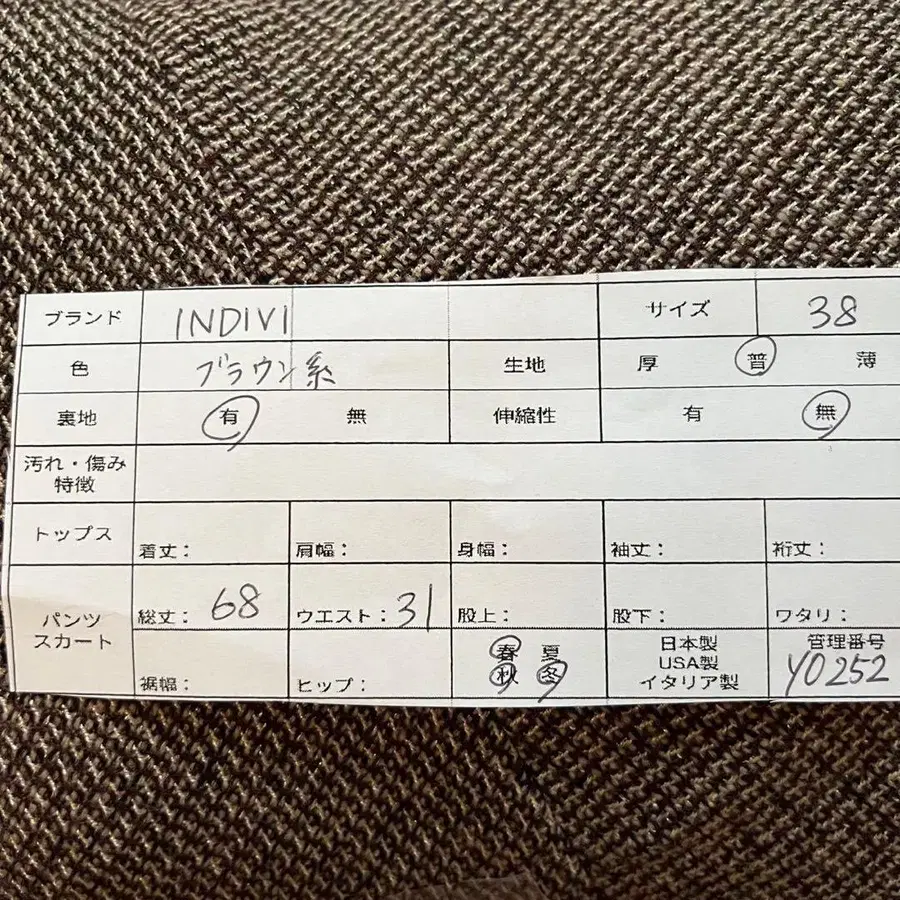 ブランド INDIVI サイズ 38
色 ブラウン系 生地 厚 普 薄
裏地 有 無 伸縮性 有 無
汚れ・傷み
特徴
トップス 着丈： 肩幅： 身幅： 袖丈： 裄丈：
パンツ
スカート
総丈：68 ウエスト：31 股上： 股下： ワタリ：
裾幅： ヒップ：
春 夏
秋 冬
日本製
USA製
イタリア製
管理番号
Y0252